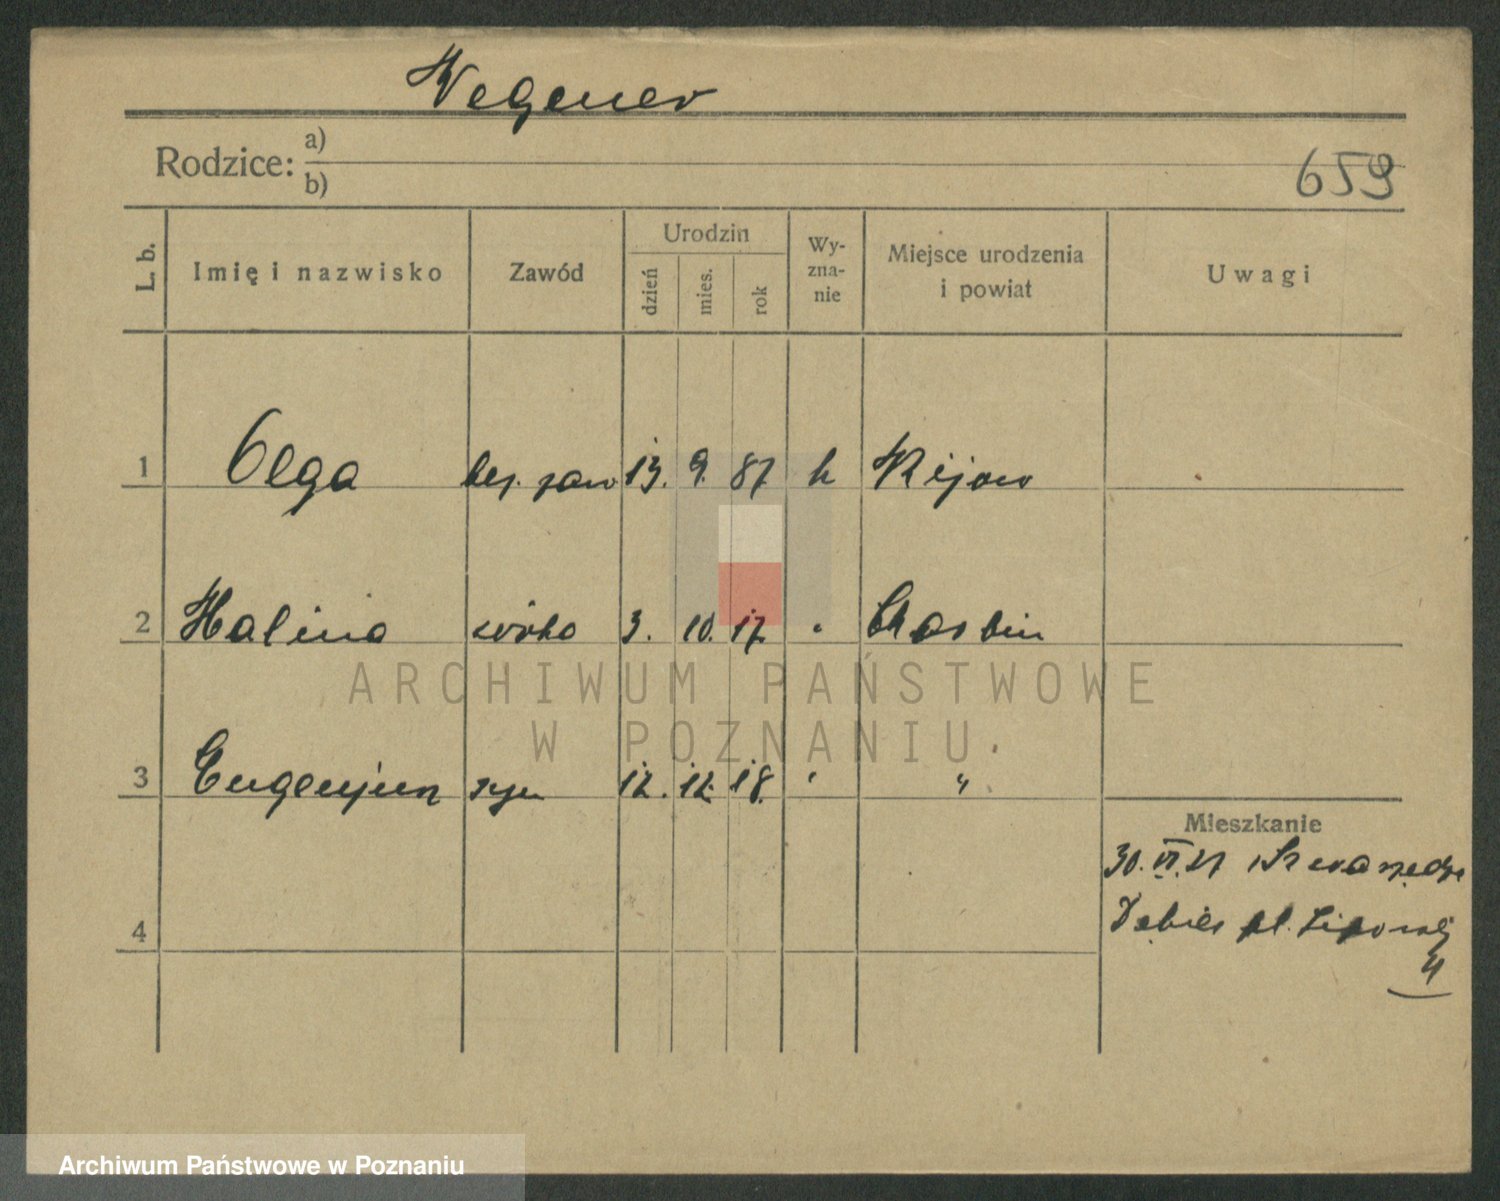 Wegener
Rodzice: a)
b)
659
L. b. Imię i nazwisko Zawód Urodzin dzień mies. rok Wy-zna-nie Miejsce urodzenia i powiat Uwagi
1 Olga bez. zaw 13. 9. 87 k Kijow
2 Halina córka 3. 10. 17. " Charbin
3 Eugenjusz syn 12. 12. 18. " "
Mieszkanie
30. VI. 27
4
Dębiec pl. Lipowy
4
ARCHIWUM PAŃSTWOWE
W POZNANIU
Archiwum Państwowe w Poznaniu